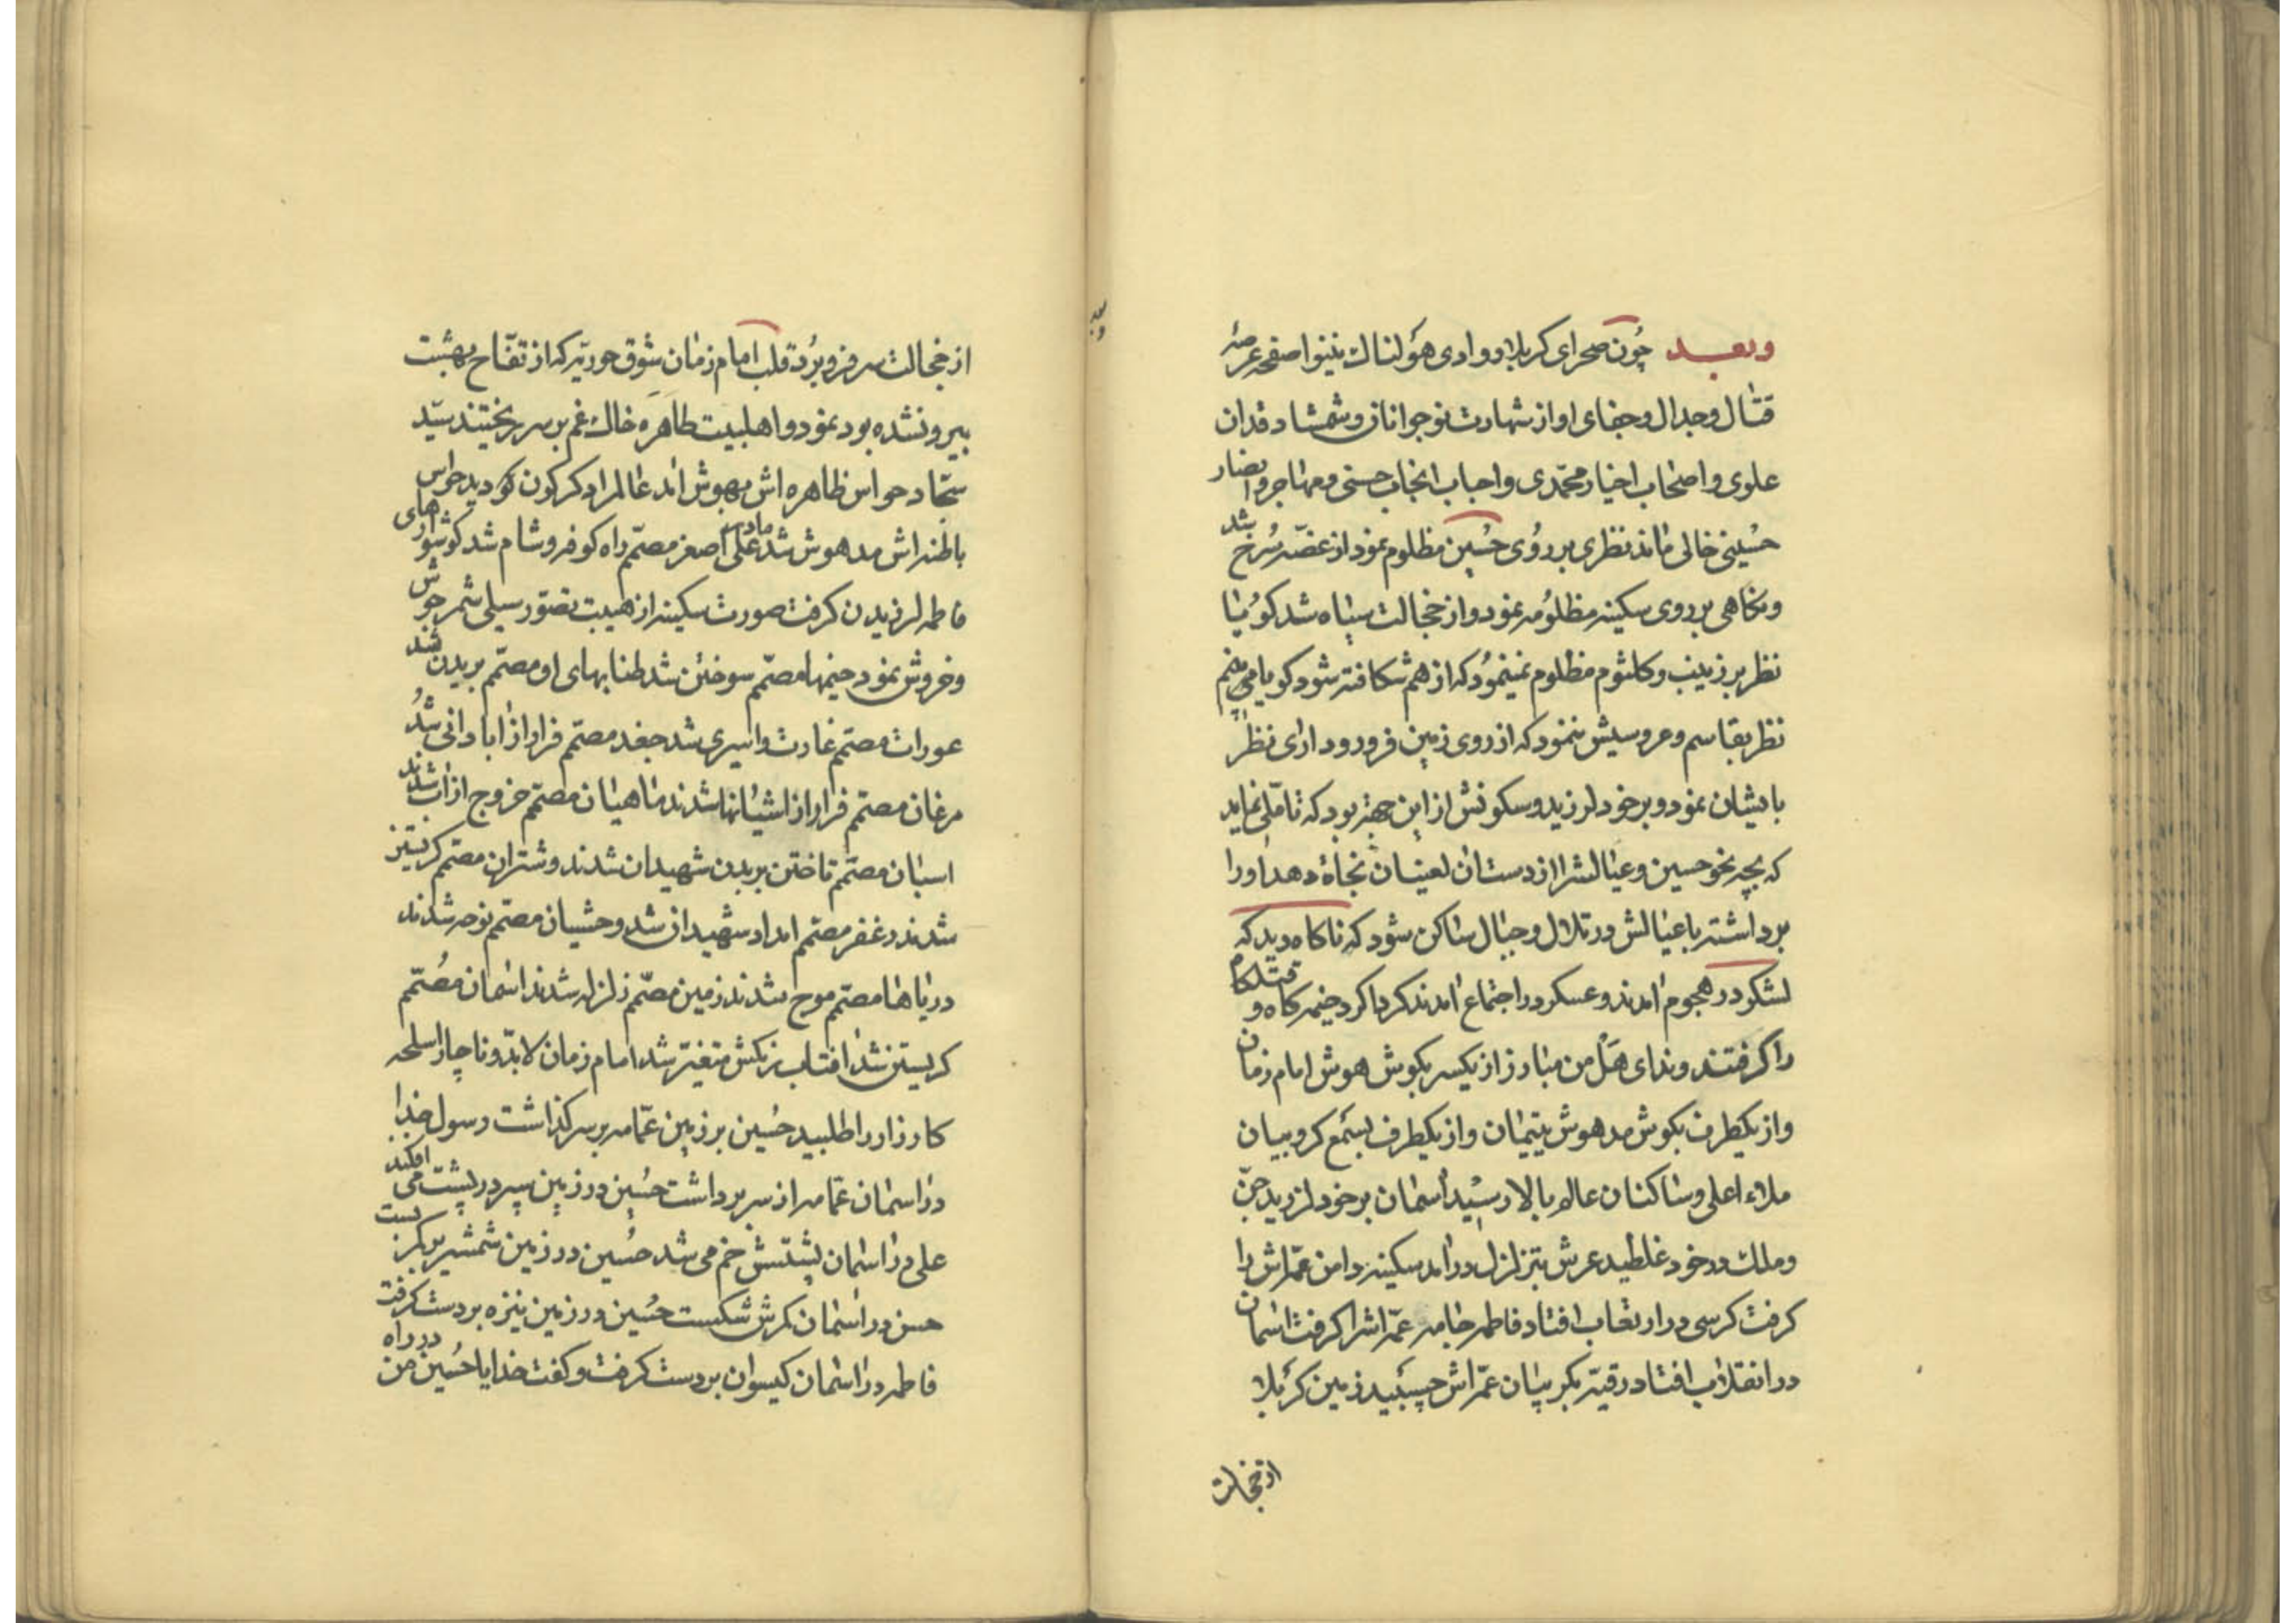 وبعد چون صحرای کربلا و وادی هولناک نینوا صفحه عرصهٔ
قتال وجدال وجفای او از شهادت نوجوانان وشمشاد قدان
علوی و اصحاب اخیار محمّدی و احباب انجاب حسنی ومهاجر وانصار
حُسینی خالی ماند نظری بر روُی حُسین مظلوم نمود از غصّه سُرخ شد
ونکاهی بر روی سکینه مظلوُمه نمود و از خجالت سیاه شد کوُیا
نظر بر زینب وکلثوم مظلوم نمینموُد که از هم شکافته شود کویا می بینم
نظر بقاسم وعروسیش ننمود که از روی زمین فرو رود ارای نظر
بایشان نمود و بر خود لرزید وسکونش از این جهة بود که تامّلی نماید
که بچه نحو حسین وعیالشرا از دستان لعینان نجاة دهد اورا
برداشته باعیالش در تلال وجبال ساکن شود که ناکاه دید که
لشکر در هجوم امدند وعسکر در اجتماع امدند کرداکرد خیمه کاه و قتلکاه
را کرفتند وندای هَلْ من مبارز از یکسر بکوش هوش امام زمان
واز یکطرف بکوش مدهوش یتیمان واز یکطرف بسَمع کروبیان
ملاء اعلی وساکنان عالم بالا رسیْد اسمان بر خود لرزید جنّ
وملک در خود غلطید عرش بتزلزل در امد سکینه دامن عمّه اش را
کرفت کرسی در ارتعاب افتاد فاطمه جامه عمّه اشرا کرفت اسمان
در انقلاب افتاد رقیّه بکریبان عمّه اش چسبید زمین کربلا
از خجالت
از خجالت سر فرو برُد قلب امام زمان شوق حوریّه که از تفّاح بهشت
بیرون شده بود نمود و اهلبیت طاهره خاک غم بر سر ریختند سیّد
سجّاد حواس ظاهره اش مبهوش امد عالمرا دکرکون کو دید حواس
باطنه اش مدهوش شد مادر علی اصغر مصمّم راه کوفه وشام شد کوشوارهای
فاطمه لرزیدن کرفت صورت سکینه از هیبت تصوّر سیلی شمر جوش
وخروش نمود خیمها مصمّم سوختن شد طنابهای او مصمّم بریدن شد
عورات مصمّم غارت واسیری شد جغد مصمّم فرار از ابادانی شُد
مرغان مصمّم فرار از اشیانها شدند ماهیان مصمّم خروج از اب شدند
اسبان مصمّم تاختن بر بدن شهیدان شدند وشتران مصمّم کریستن
شدند زعفر مصمّم امداد شهیدان شد وحشیان مصمّم نوحه شدند
دریاها مصمّم موج شدند زمین مصمّم زلزله شدند اسمان مصُمّم
کریستن شد افتاب رنکش متغیّر شد امام زمان لابدّ وناچار اسلحه
کارزار را طلبید حُسین بر زمین عمّامه بر سر کذاشت رسول خدا
در اسمان عمّامه از سر برداشت حسُین در زمین سپر در پشت می افکند
علی در اسمان پشتش خم می شد حسُین در زمین شمشیر بر کمر بست
حسن در اسمان کمرش شکست حسُین در زمین نیزه بر دست کرفت
فاطمه در اسمان کیسوان بر دست کرفت وکفت خدایا حسُین من در راه